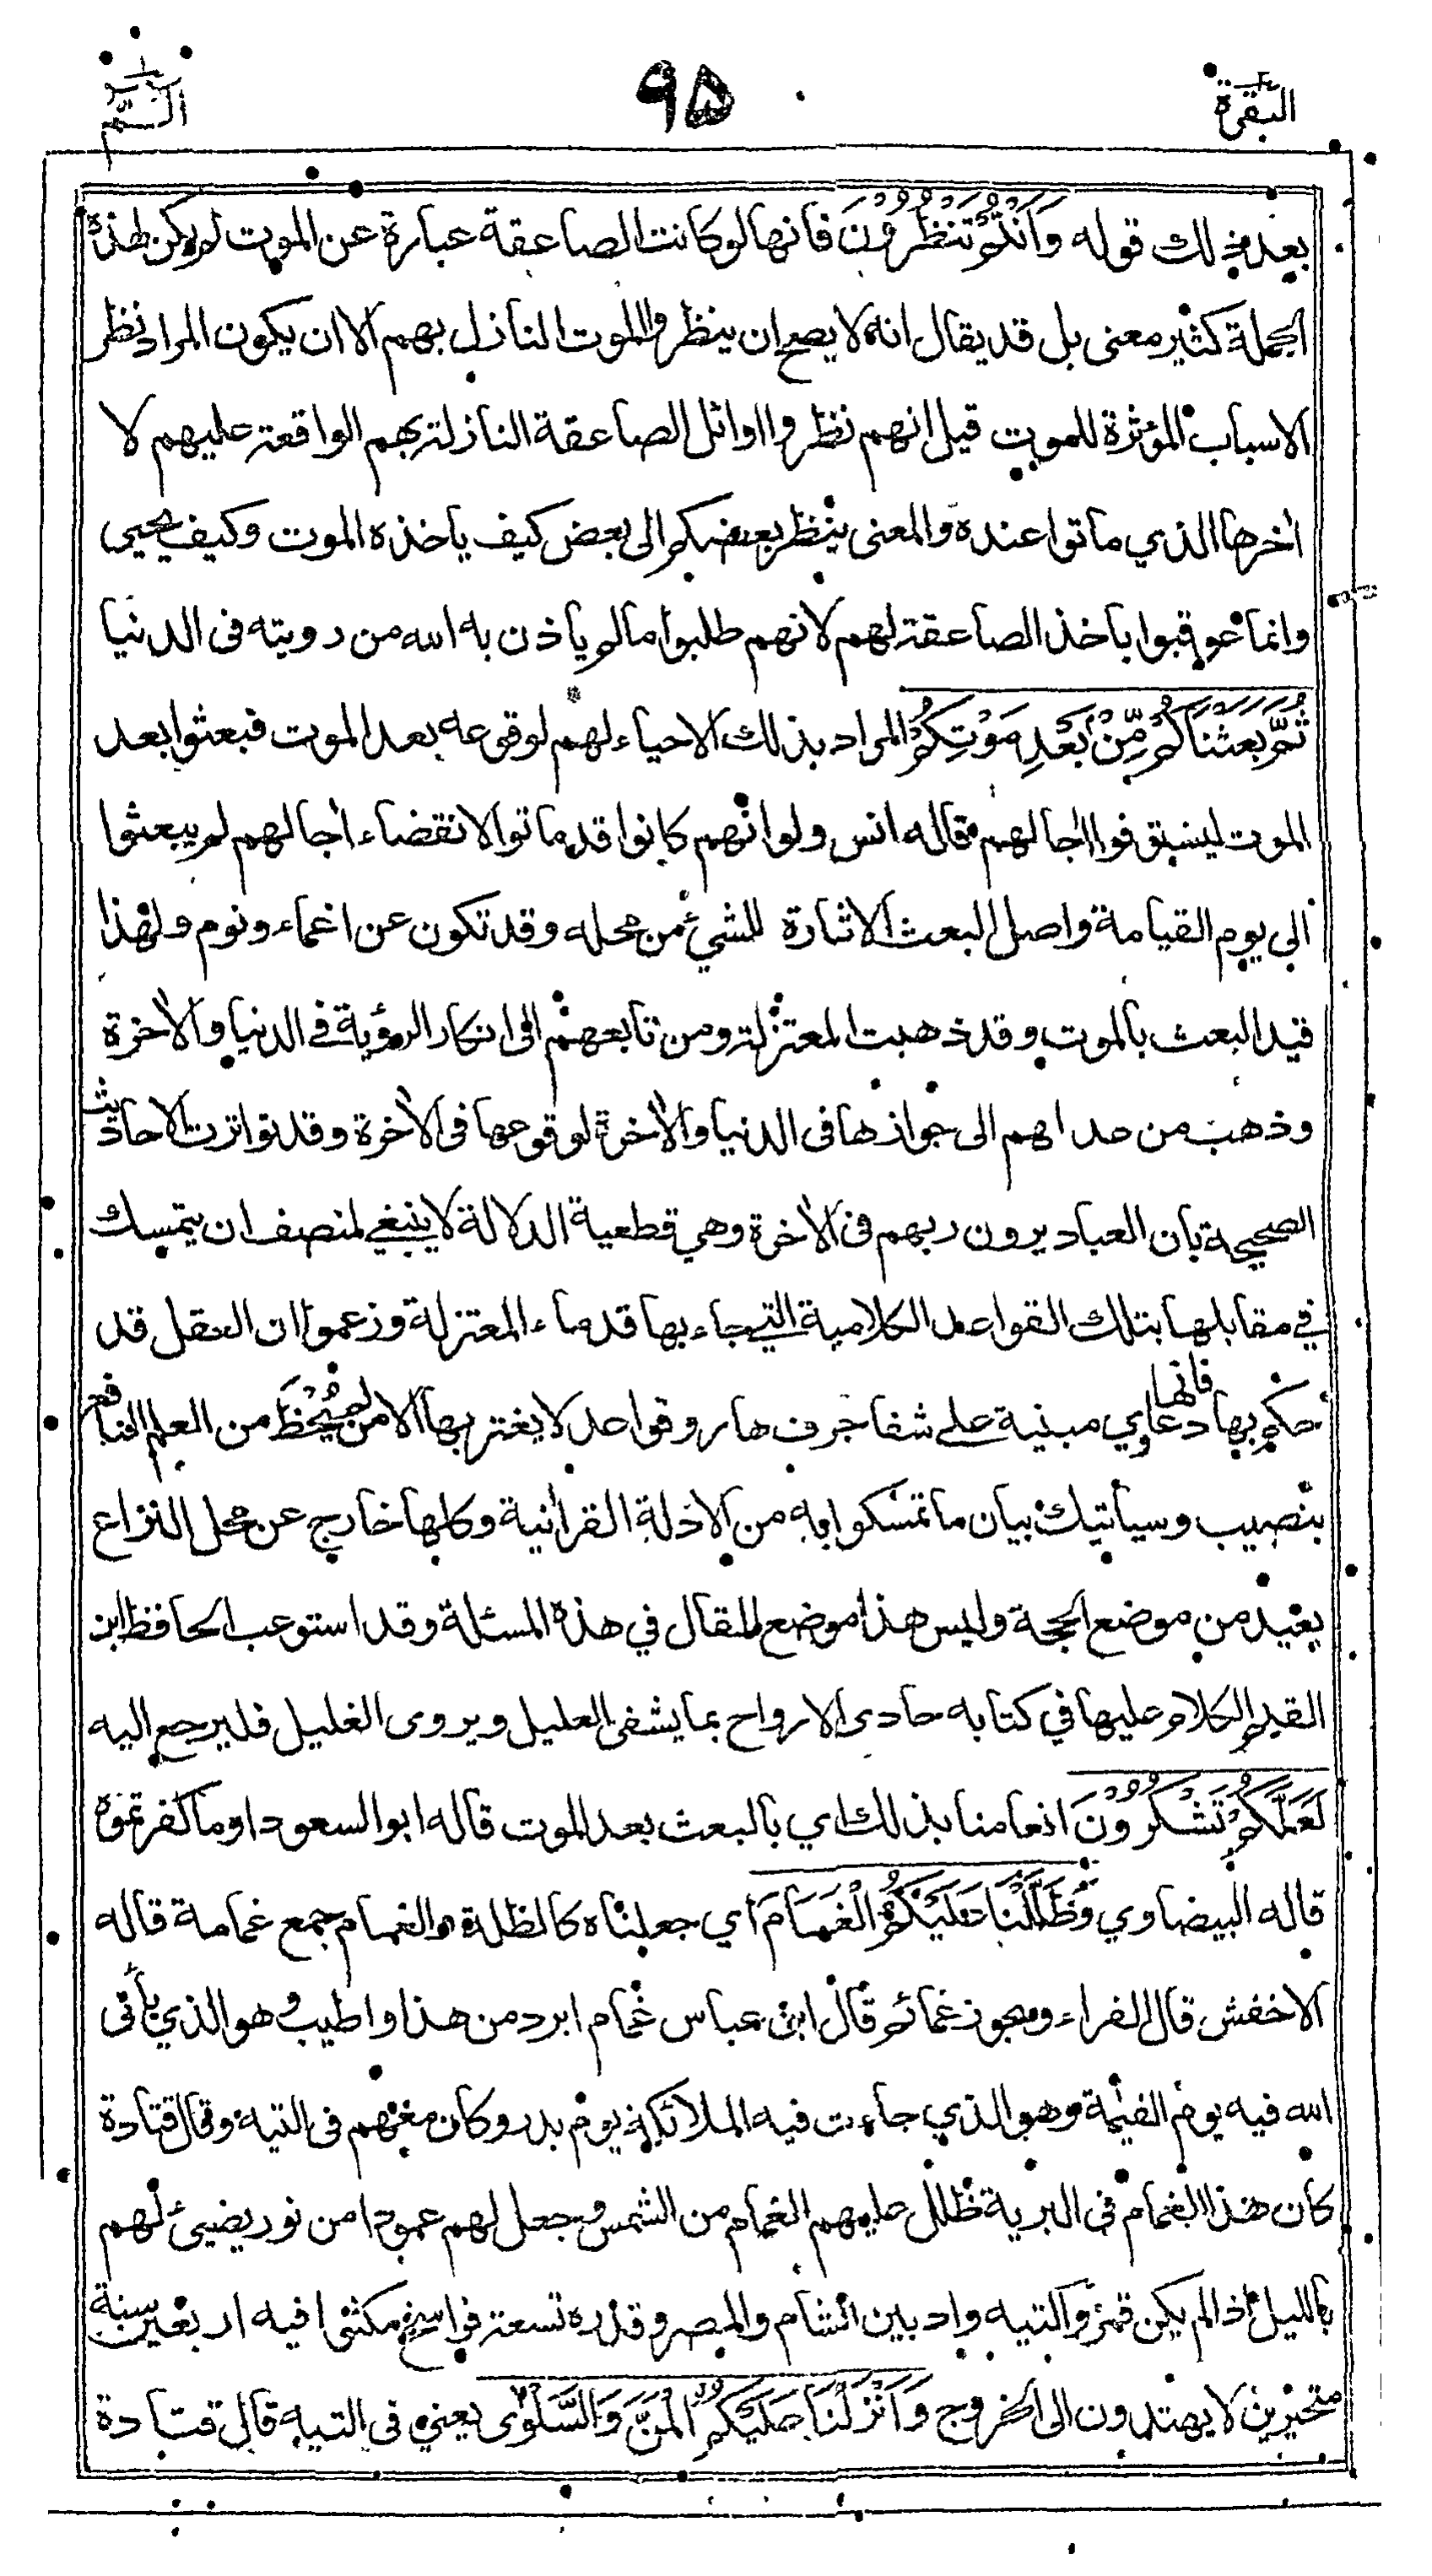 البقرة ۹۵ الٓمّٓ
بعد ذلك قوله وَاَنْتُمْ تَنْظُرُوْنَ فانها لو كانت الصاعقة عبارة عن الموت لم يكن لهذه
الجملة كثير معنى بل قد يقال انه لا يصح ان ينظروا الموت النازل بهم الا ان يكون المراد نظر
الاسباب المؤثرة للموت قيل انهم نظروا اوائل الصاعقة النازلة بهم الواقعة عليهم لا
اٰخرها الذي ماتوا عنده والمعنى ينظر بعضكم الى بعض كيف ياخذه الموت وكيف يحيى
وانما عوقبوا باخذ الصاعقة لهم لانهم طلبوا ما لم ياذن به الله من رويته فى الدنيا
ثُمَّ بَعَثْنَاكُمْ مِّنْ بَعْدِ مَوْتِكُمْ المراد بذلك الاحياء لهم لوقوعه بعد الموت فبعثوا بعد
الموت ليستوفوا اٰجالهم قاله انس ولو انهم كانوا قد ماتوا لانقضاء اٰجالهم لم يبعثوا
الى يوم القيامة واصل البعث الاثارة للشيء من محله وقد تكون عن اغماء ونوم ولهذا
قيد البعث بالموت وقد ذهبت المعتزلة ومن تابعهم الى انكار الرؤية في الدنيا والاٰخرة
وذهب من عداهم الى جوازها فى الدنيا والاٰخرة لوقوعها فى الاٰخرة وقد تواترت الاحاديث
الصحيحة بان العباد يرون ربهم فى الاٰخرة وهي قطعية الدلالة لا ينبغي لمنصف ان يتمسك
في مقابلها بتلك القواعد الكلامية التي جاء بها قدماء المعتزلة وزعموا ان العقل قد
حكم بها فانها دعاوي مبنية على شفا جرف هار وقواعد لا يغتر بها الا من لم يُحْظَ من العلم النافع
بنصيب وسيأتيك بيان ما تمسكوا به من الادلة القراٰنية وكلها خارج عن محل النزاع
بعيد من موضع الحجة وليس هذا موضع المقال في هذه المسئلة وقد استوعب الحافظ ابن
القيم الكلام عليها في كتابه حادى الارواح بما يشفى العليل ويروى الغليل فليرجع اليه
لَعَلَّكُمْ تَشْكُرُوْنَ انعامنا بذلك اي بالبعث بعد الموت قاله ابو السعود او ما كفرتموه
قاله البيضاوي وَظَلَّلْنَا عَلَيْكُمُ الْغَمَامَ اي جعلناه كالظلة والغمام جمع غمامة قاله
الاخفش قال الفراء ويجوز غمائم قال ابن عباس غمام ابرد من هذا واطيب وهو الذي ياتى
الله فيه يوم القيٰمة وهو الذي جاءت فيه الملائكة يوم بدر وكان معهم فى التيه وقال قتادة
كان هذا الغمام فى البرية ظلل عليهم الغمام من الشمس وجعل لهم عمودا من نور يضيئ لهم
بالليل اذ لم يكن قمر والتيه واد بين الشام والمصر وقدره تسعة فراسخ مكثوا فيه اربعين سنة
متحيرين لا يهتدون الى الخروج وَاَنْزَلْنَا عَلَيْكُمُ الْمَنَّ وَالسَّلْوٰى يعني فى التيه قال قتادة